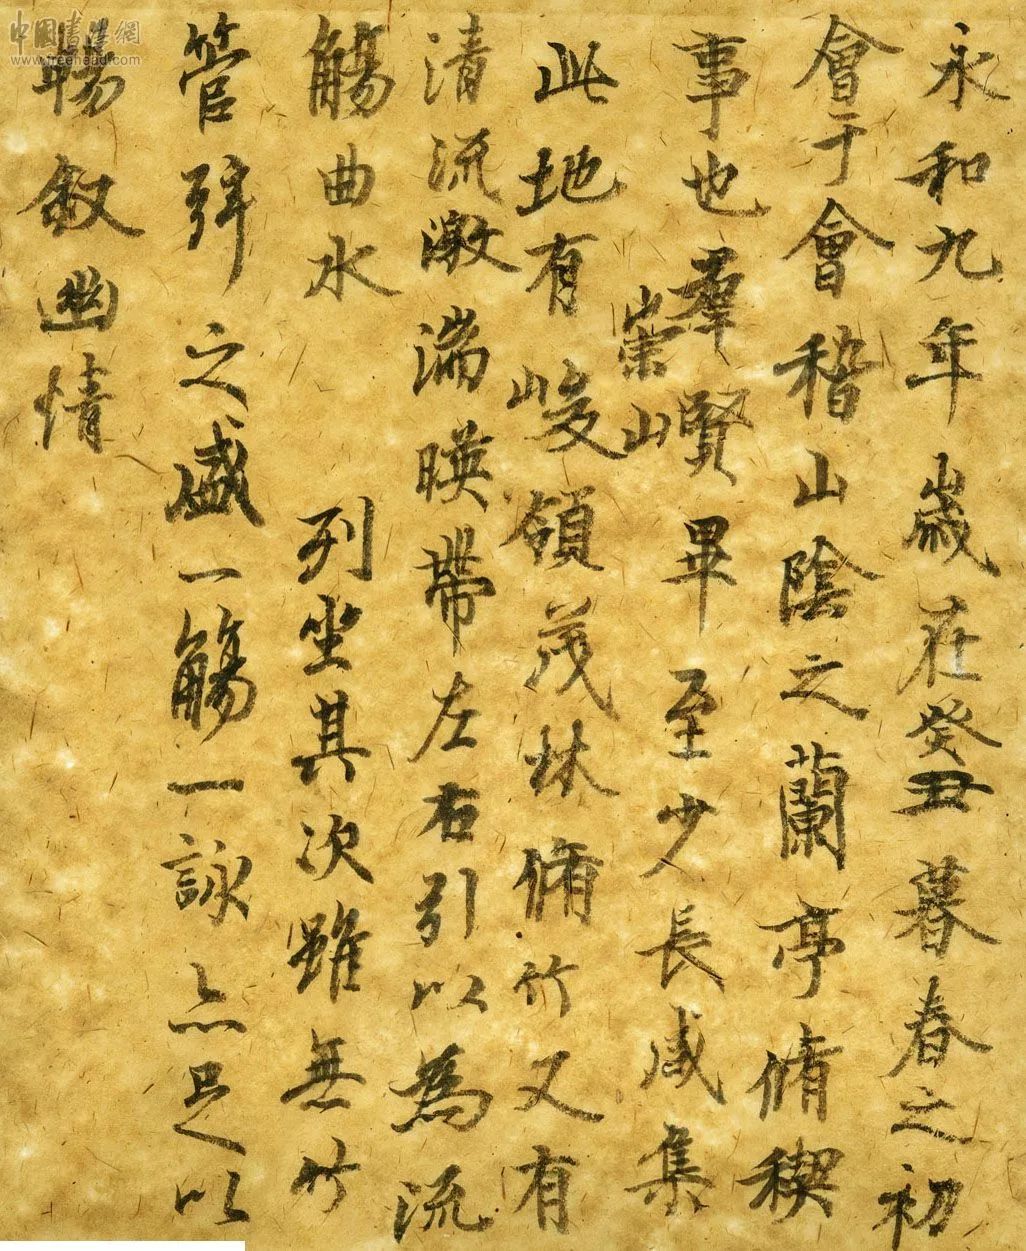 永和九年歲在癸丑暮春之初
會于會稽山陰之蘭亭脩稧
事也羣賢畢至少長咸集
此地有崇山峻領茂林脩竹又有
清流激湍暎帶左右引以為流
觴曲水列坐其次雖無竹
管弦之盛一觴一詠亦足以
暢敘幽情
www.freehead.com